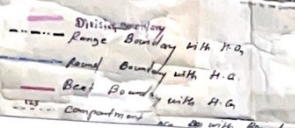 Division Boundary
Range Boundary with H.Q.
Round Boundary with H.Q.
Beat Boundary with H.Q.
123 Compartment with